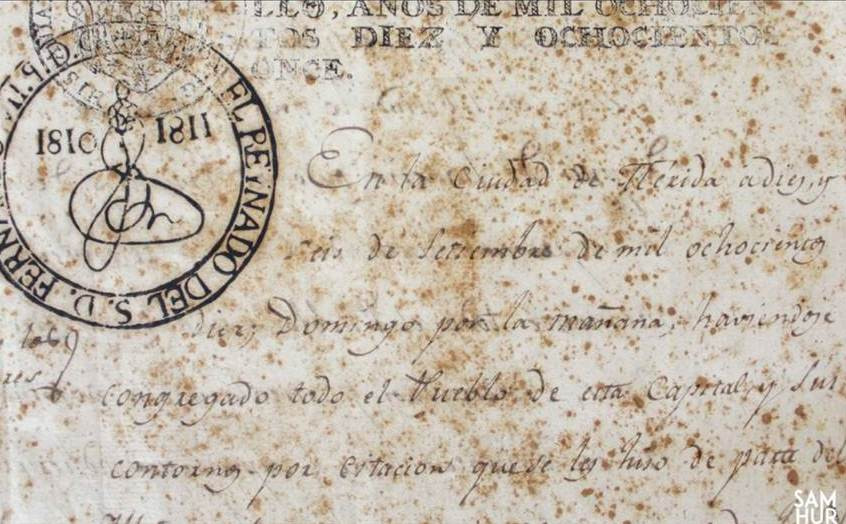 LLO, AÑOS DE MIL OCHOCIEN
TOS DIEZ Y OCHOCIENTOS
ONCE.
EL REYNADO DEL S. D. FERN
1810 1811
En la Ciudad de Merida a diez, y
seis de Setiembre de mil ochocientos
diez; Domingo por la mañana, haviendose
congregado todo el Pueblo de esta Capital, y sus
contornos por citacion que se les hiso de parte del
SAM
HUR